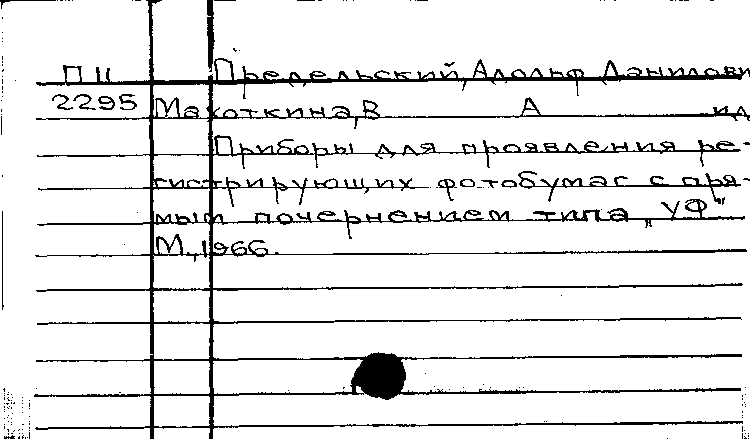 П II Предельский, Адольф Данилови
2295 Махоткина, В А ид
Приборы для проявления ре-
гистрирующих фотобумаг с пря-
мым почернением типа „УФ"
М., 1966.